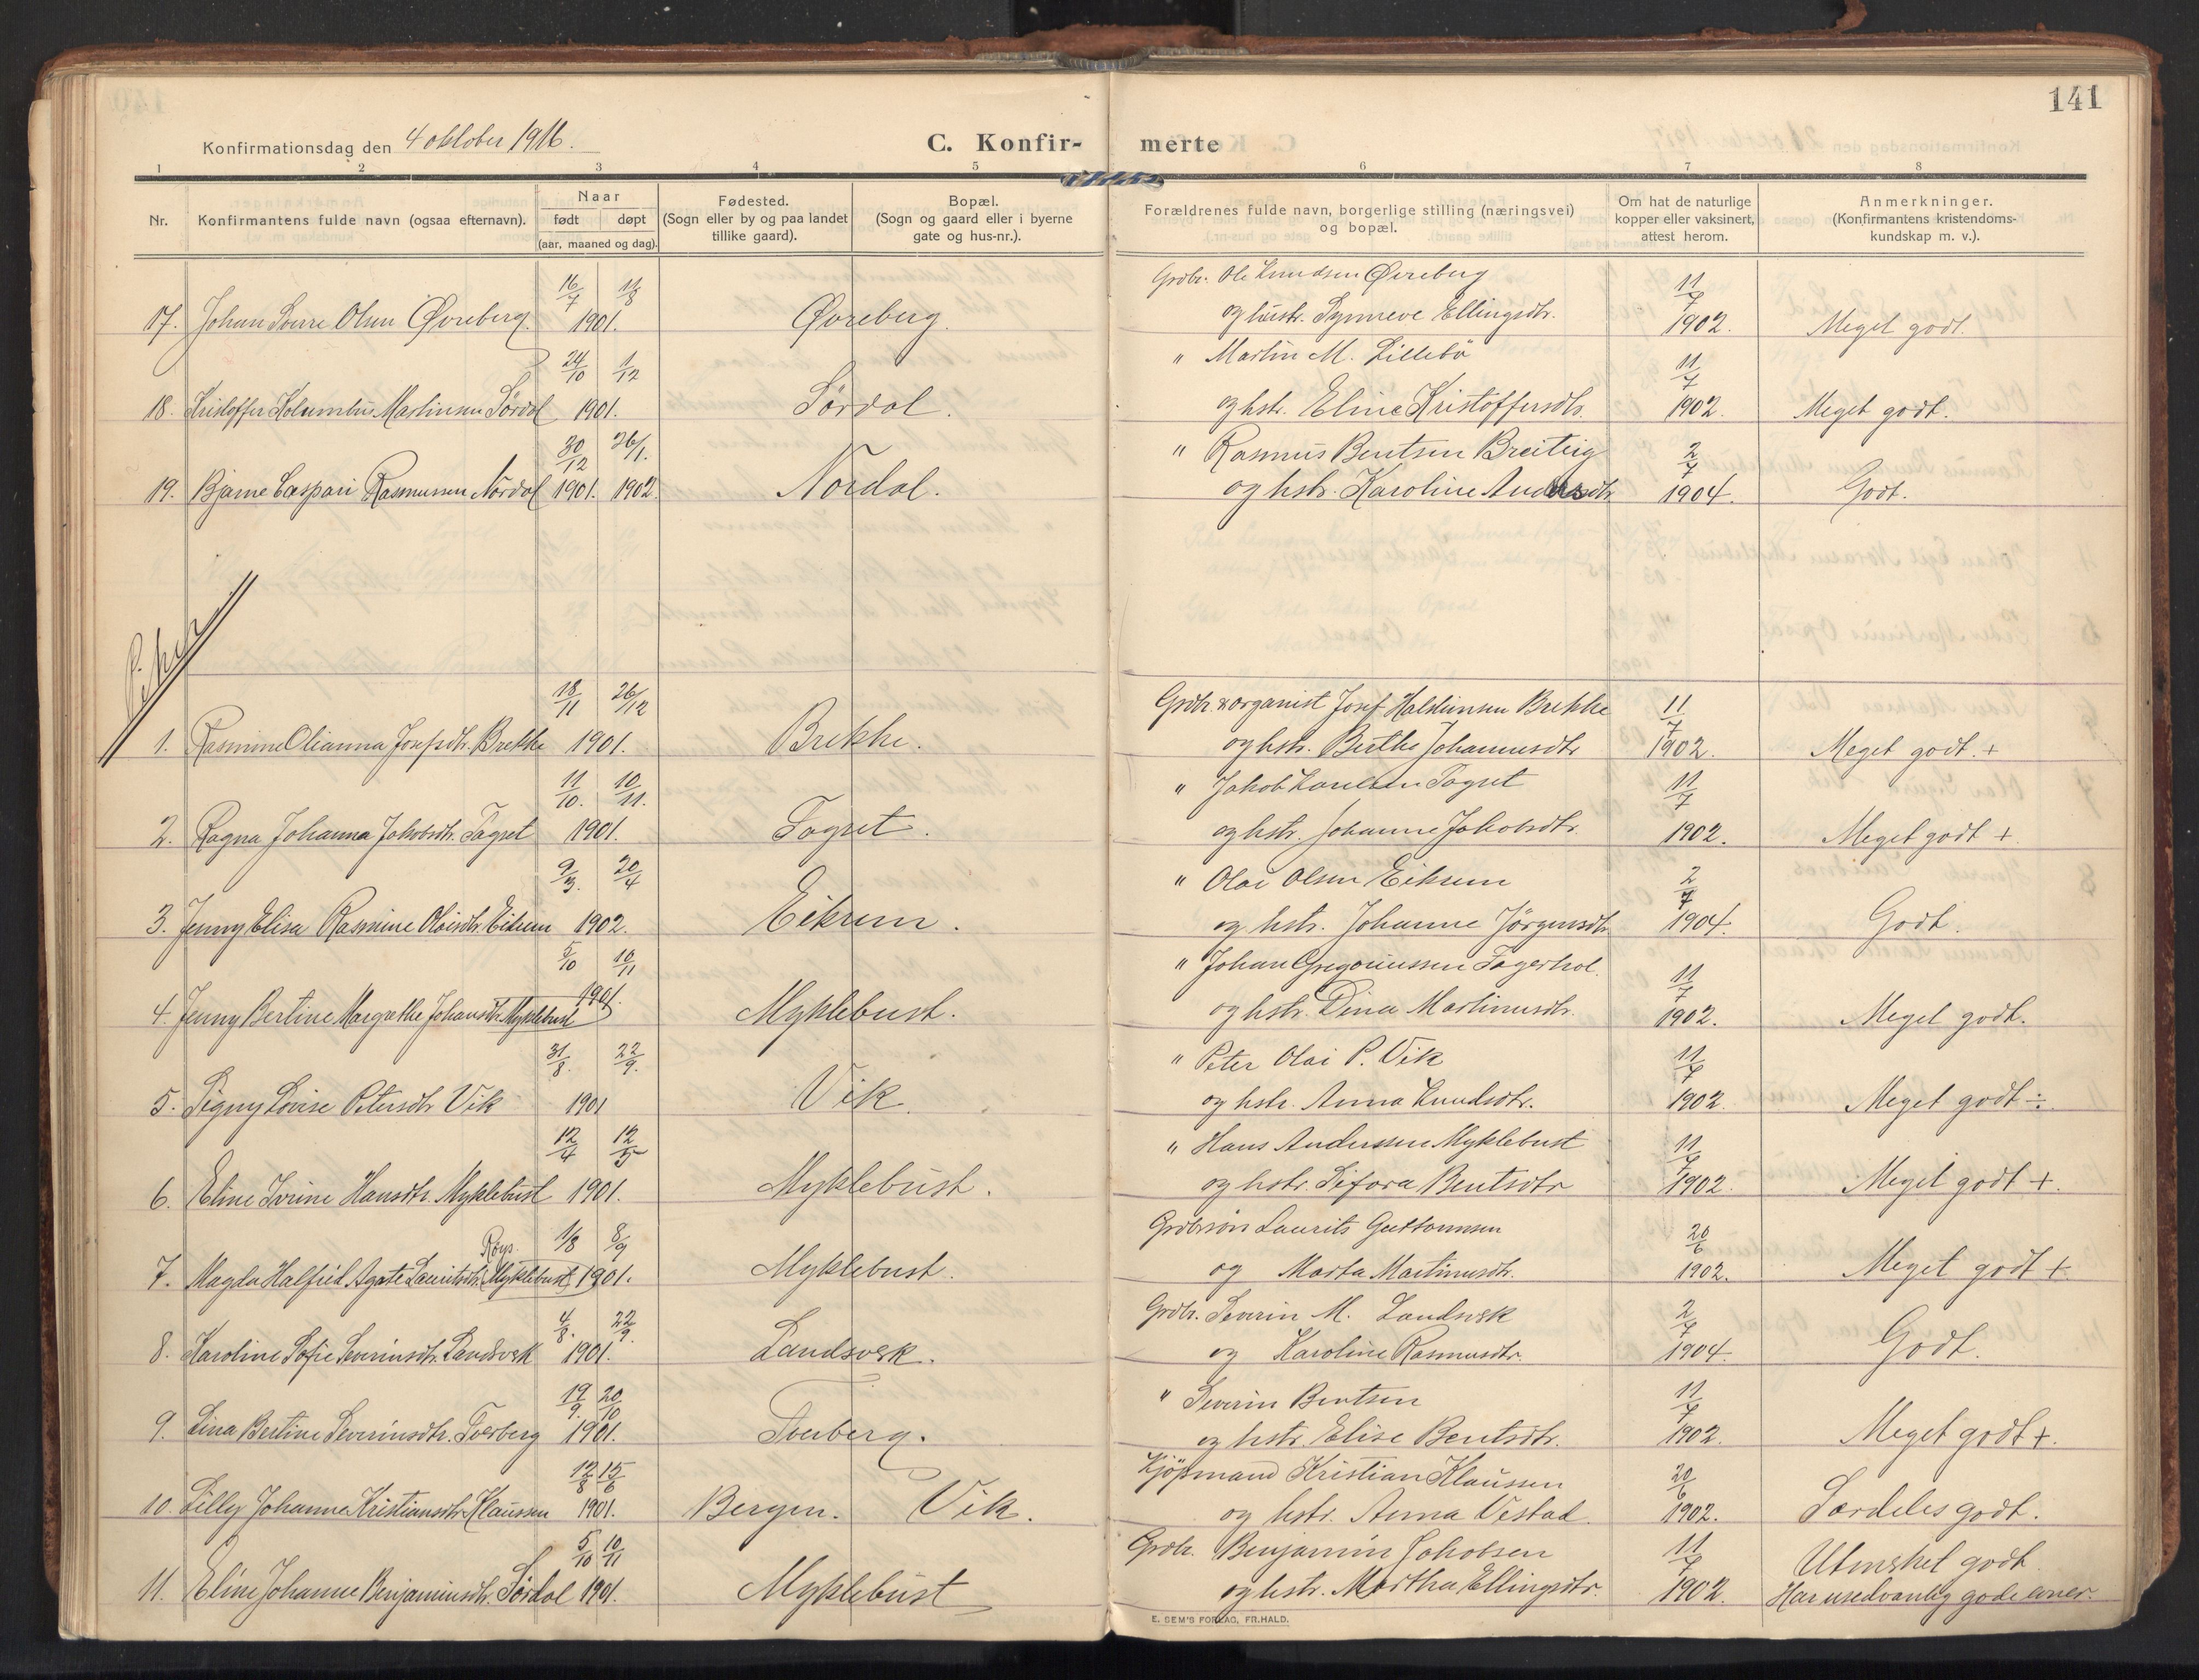 141
Konfirmationsdag den 4 oktober 1916.
C. Konfir- merte
1 2 3 4 5 6 7 8
Nr. Konfirmantens fulde navn (ogsaa efternavn). Naar født døpt (aar, maaned og dag). Fødested. (Sogn eller by og paa landet tillike gaard). Bopæl. (Sogn og gaard eller i byerne gate og hus-nr.). Forældrenes fulde navn, borgerlige stilling (næringsvei) og bopæl. Om hat de naturlige kopper eller vaksinert, attest herom. Anmerkninger. (Konfirmantens kristendoms- kundskap m. v.).
16/7 11/8 Grdbr. Ole Knudsen Øvreberg 11/7
17. Johan Sverre Olsen Øvreberg. 1901. Øvreberg. og hustr. Synneve Ellingsdtr. 1902. Meget godt.
24/10 1/12 " Martin M. Lillebö 11/7
18. Kristoffer Kolumbus Martinsen Sördal 1901. Sördal. og hstr. Eline Kristoffersdtr. 1902. Meget godt.
30/12 26/1. " Rasmus Bentsen Breiteig 2/7
19. Bjarne Caspari Rasmussen Nordal 1901. 1902. Nordal. og hstr. Karoline Andersdtr. 1904. Godt.
Piker
18/11 26/12 Grdbr. & organist Josef Halstensen Brekke 11/7
1. Rasmine Olianna Josefsdtr. Brekke 1901. Brekke. og hstr. Berthe Johannesdtr 1902. Meget godt. +
11/10. 10/11. " Jakob Paulsen Fagset 11/7
2. Ragna Johanna Jakobsdtr. Fagset 1901. Fagset. og hstr. Johanne Jakobsdtr. 1902. Meget godt +
9/3. 20/4 " Olai Olsen Eikrem 2/7
3. Jenny Elisa Rasmine Olaisdtr. Eikrem 1902. Eikrem. og hstr. Johanne Jörgensdtr. 1904. Godt.
5/10 10/11 " Johan Gregoriussen Fagerhol. 11/7
4. Jenny Bertine Margrethe Johansdtr. Myklebust 1901. Myklebust. og hstr. Dina Martinusdtr. 1902. Meget godt.
31/8. 22/9. " Peter Olai P. Vik 11/7
5. Signy Lovise Petersdtr Vik 1901 Vik. og hstr. Anna Knudsdtr. 1902. Meget godt ÷.
12/4 12/5 " Hans Anderssen Myklebust 11/7
6. Eline Ivrine Hansdtr. Myklebust 1901. Myklebust. og hstr. Sifora Bentsdtr 1902. Meget godt +.
Røys. 1/8 8/9 Grdbrsøn Laurits Guttormsen 20/6
7. Magda Halfrid Agate Lauritsdtr. Myklebust 1901. Myklebust. og Marta Martinusdtr. 1902. Meget godt +
4/8. 22/9. Grdbr. Severin M. Landsvek 2/7
8. Karoline Sofie Severinsdtr. Landsvek 1901. Landsvek. og Karoline Rasmusdtr. 1904. Godt.
19/9. 20/10 " Severin Bentsen 11/7
9. Lina Bertine Severinsdtr. Tverberg 1901. Tverberg. og hstr. Elise Bentsdtr. 1902. Meget godt +.
12/8 15/6 Kjöpmand Kristian Klaussen 20/6
10. Lilly Johanne Kristiansdtr. Klaussen 1901. Bergen. Vik. og hstr. Anna Vestad. 1902. Særdeles godt.
5/10 10/11 Grdbr. Benjamin Jakobsen 11/7 Utmerket godt
11. Eline Johanne Benjaminsdtr. Sördal 1901. Myklebust og hstr. Martha Ellingsdtr. 1902. Har usedvanlig gode evner.
E. SEM'S FORLAG, FR.HALD.